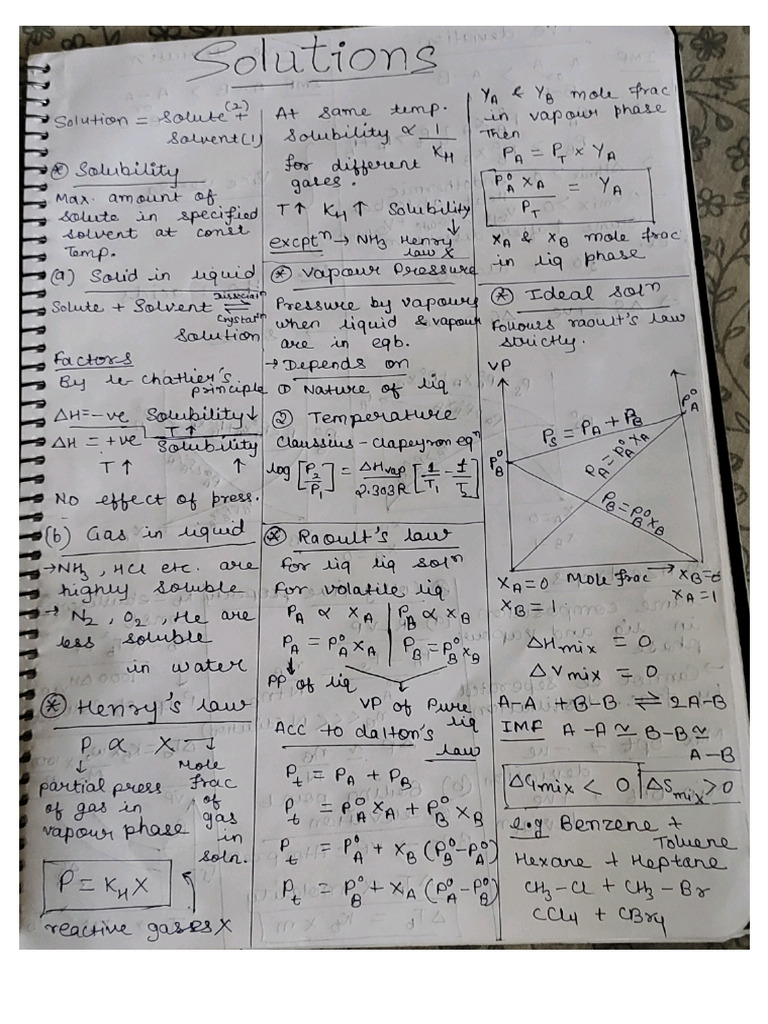 Solutions
Solution = Solute (2) +
Solvent (1)
⊛ Solubility
Max. amount of
solute in specified
solvent at const
Temp.
(a) Solid in liquid
Solute + Solvent ⇌ Solution
Dissociatn
Crystatn
Factors
By le-chatlier's
principle
ΔH=-ve Solubility↓
T↑
ΔH=+ve Solubility
T↑ ↑
No effect of press.
(b) Gas in liquid
→NH3, HCl etc. are
highly soluble
→ N2, O2, He are
less soluble
in water
⊛ Henry's law
P ∝ X →
↓ Mole
frac
of
gas
in
soln.
partial press
of gas in
vapour phase
P = KH X
reactive gases X
At same temp.
Solubility ∝ 1/KH
for different
gases.
T↑ KH↑ Solubility
↓
excptn → NH3 Henry
law X
⊛ Vapour Pressure
Pressure by vapours
when liquid & vapour
are in eqb.
→ Depends on
① Nature of liq
② Temperature
Claussius-Clapeyron eqn
log [P2/P1] = ΔHvap/2.303R [1/T1 - 1/T2]
⊛ Raoult's law
for liq liq soln
for volatile liq
PA ∝ XA | PB ∝ XB
PA = P°A XA | PB = P°B XB
↓
PP of liq
VP of Pure
liq
Acc to dalton's
law
Pt = PA + PB
Pt = P°A XA + P°B XB
Pt = P°A + XB (P°B - P°A)
Pt = P°B + XA (P°A - P°B)
YA & YB mole frac
in vapour phase
Then
PA = PT × YA
P°A XA / PT = YA
XA & XB mole frac
in liq phase
⊛ Ideal soln
Follows raoult's law
strictly.
VP
P°A
PS = PA + PB
PA = P°A XA
P°B
PB = P°B XB
XA=0 Mole frac → XB=0
XB=1 XA=1
ΔHmix = 0
ΔVmix = 0
A-A + B-B ⇌ 2A-B
IMF A-A ≃ B-B ≃
A-B
ΔGmix < 0, ΔSmix > 0
e.g Benzene +
Toluene
Hexane + Heptane
CH3-Cl + CH3-Br
CCl4 + CBr4